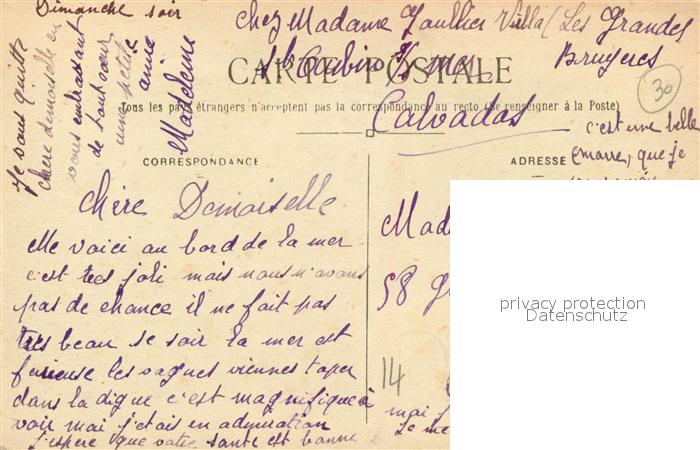 Dimanche soir
chez Madame Gaultier Villa (Les Grandes
Bruyeres
St Aubin s/ mer
CARTE POSTALE
Tous les pays étrangers n'acceptent pas la correspondance au recto (Se renseigner à la Poste)
Calvados
30
c'est une belle
marre, que je
CORRESPONDANCE
ADRESSE
Chère Demoiselle
Me voici au bord de la mer
c'est tres joli mais nous n'avons
pas de chance il ne fait pas
tres beau se soir la mer est
furieuse les vagues viennes taper
dans la digue c'est magnifique à
voir moi j'etais en admiration
J'espere que votre santé est bonne
Mad
58 g
14
mai
Le me
Je vous quitte
chere demoiselle en
vous embrassant
de tout coeur
une petite
amie
Madeleine
privacy protection
Datenschutz